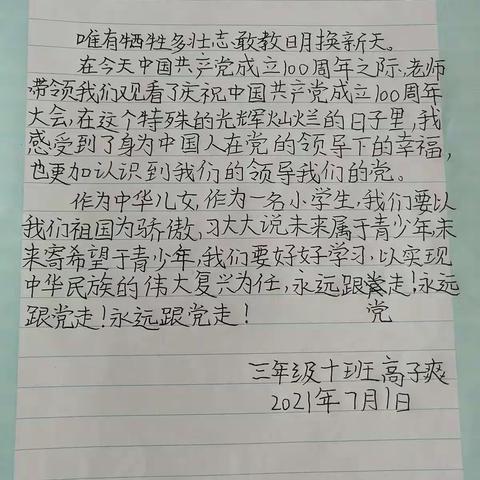 唯有牺牲多壮志,敢教日月换新天。
在今天中国共产党成立100周年之际,老师
带领我们观看了庆祝中国共产党成立100周年
大会,在这个特殊的光辉灿烂的日子里,我
感受到了身为中国人在党的领导下的幸福,
也更加认识到我们的领导我们的党。
作为中华儿女,作为一名小学生,我们要以
我们祖国为骄傲,习大大说未来属于青少年,未
来寄希望于青少年,我们要好好学习,以实现
中华民族的伟大复兴为任,永远跟党走!永远
跟党走!永远跟党走!
党
三年级十班王高子爽
2021年7月1日